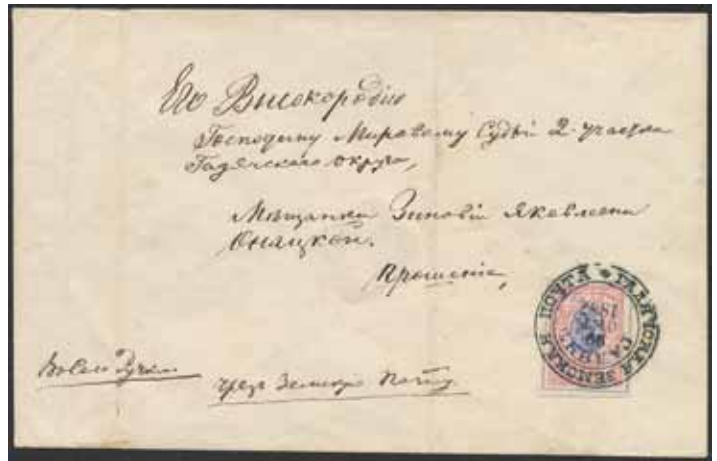 Его Высокородію
Господину Мировому Судьѣ 2 участка
Гадячскаго округа,
Мѣщанки Зиновіи Яковлевны
Онацкой.
Прошеніе,
чрезъ Земскую Почту
ГАДЯЧСКАЯ ЗЕМСКАЯ ПОЧТА